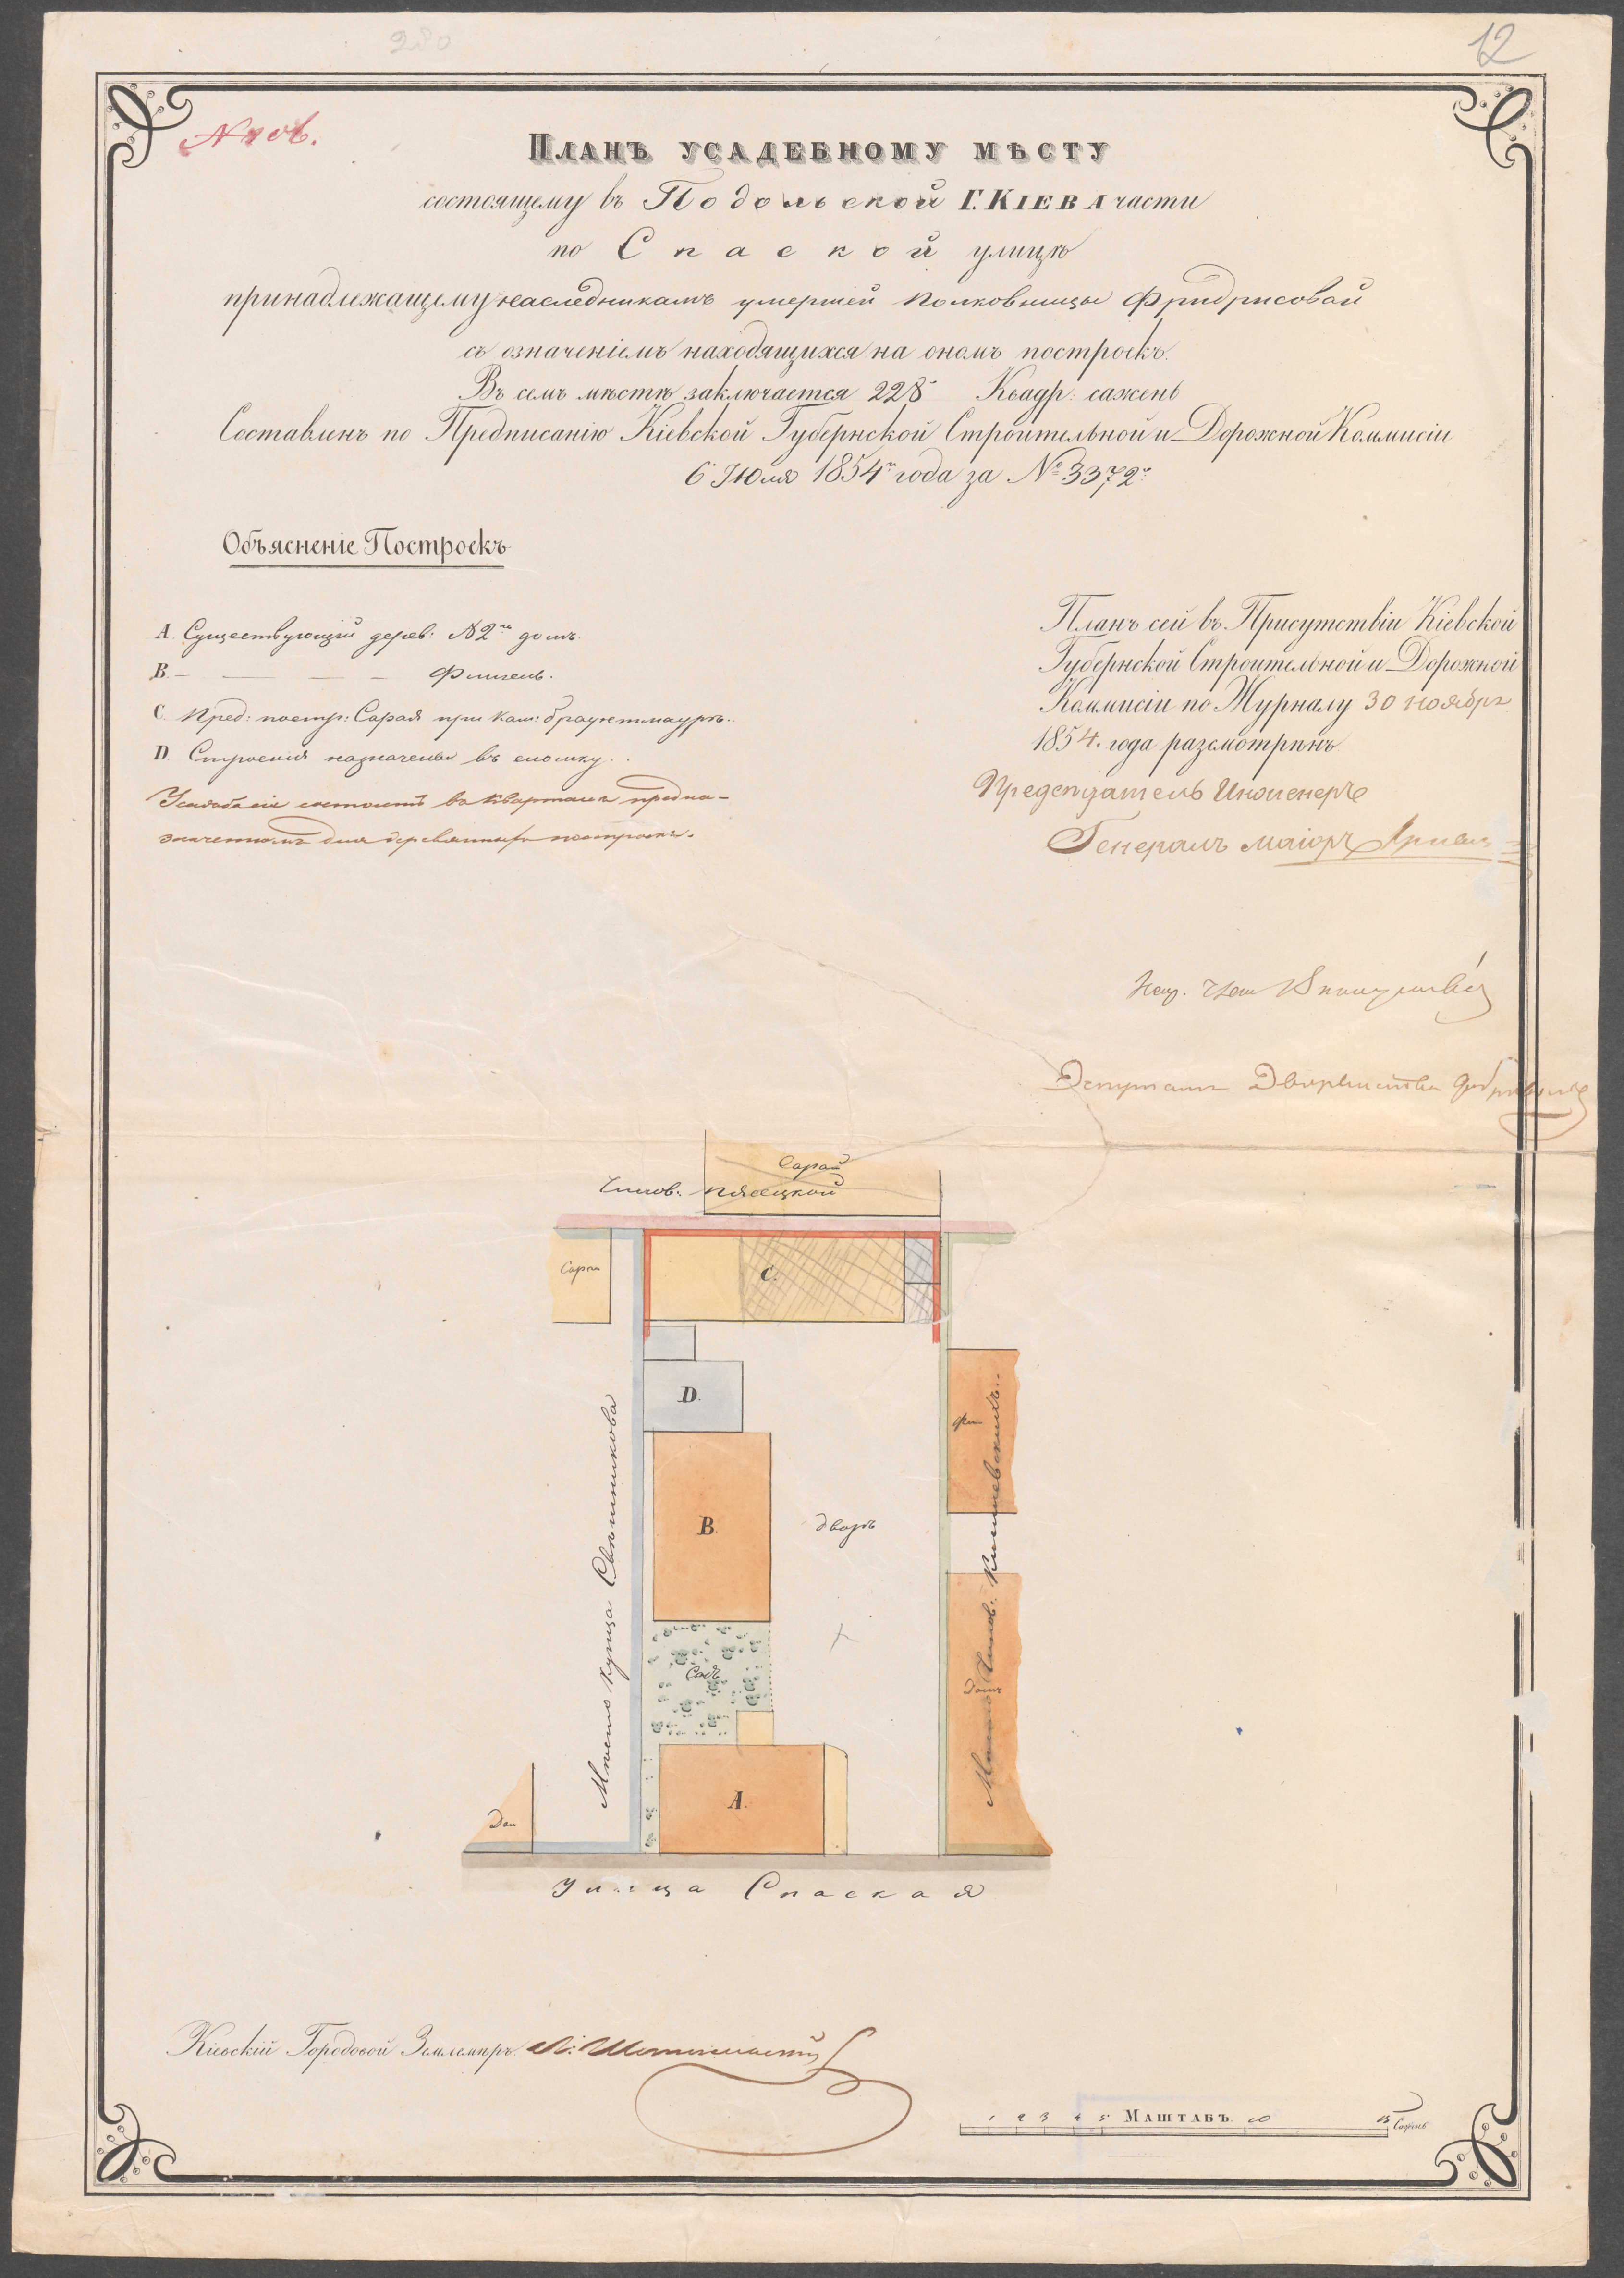 12
280
ПЛАНЪ УСАДЕБНОМУ МѢСТУ
состоящему въ Подольской Г. КІЕВА части
по Спаской улицѣ
принадлежащему наслѣдникамъ умершей Полковницы Фридрисовой
съ означеніемъ находящихся на ономъ построекъ.
Въ семъ мѣстѣ заключается 228 Квадр: сажень
Составленъ по Предписанію Кіевской Губернской Строительной и Дорожной Коммисіи
6 Іюля 1854 года за № 3372
Объясненіе Построекъ
A. Существующій дерев: №2й домъ.
B. — — — — Флигель.
C. Пред: постр: Сарай при кам: брантмауръ.
D. Строенія назначены въ сломку.
состоитъ въ кварталѣ предна-
значенномъ для деревянныхъ построекъ.
Планъ сей въ Присутствіи Кіевской
Губернской Строительной и Дорожной
Коммисіи по Журналу 30 ноября
1854. года разсмотрѣнъ
Председатель Инженеръ
Генералъ маіоръ
Депутатъ Дворянства
Сарай
Чинов. Плясецкой
Сарай
C.
D.
B.
дворъ
Садъ
A.
Мѣсто купца Свѣшникова
Мѣсто Чинов. Кишневскихъ
Фли
Домъ
Дом
Улица Спаская
Кіевскій Городовой Землемѣръ
1 2 3 4 5 МАШТАБЪ. 10 15 Сажень